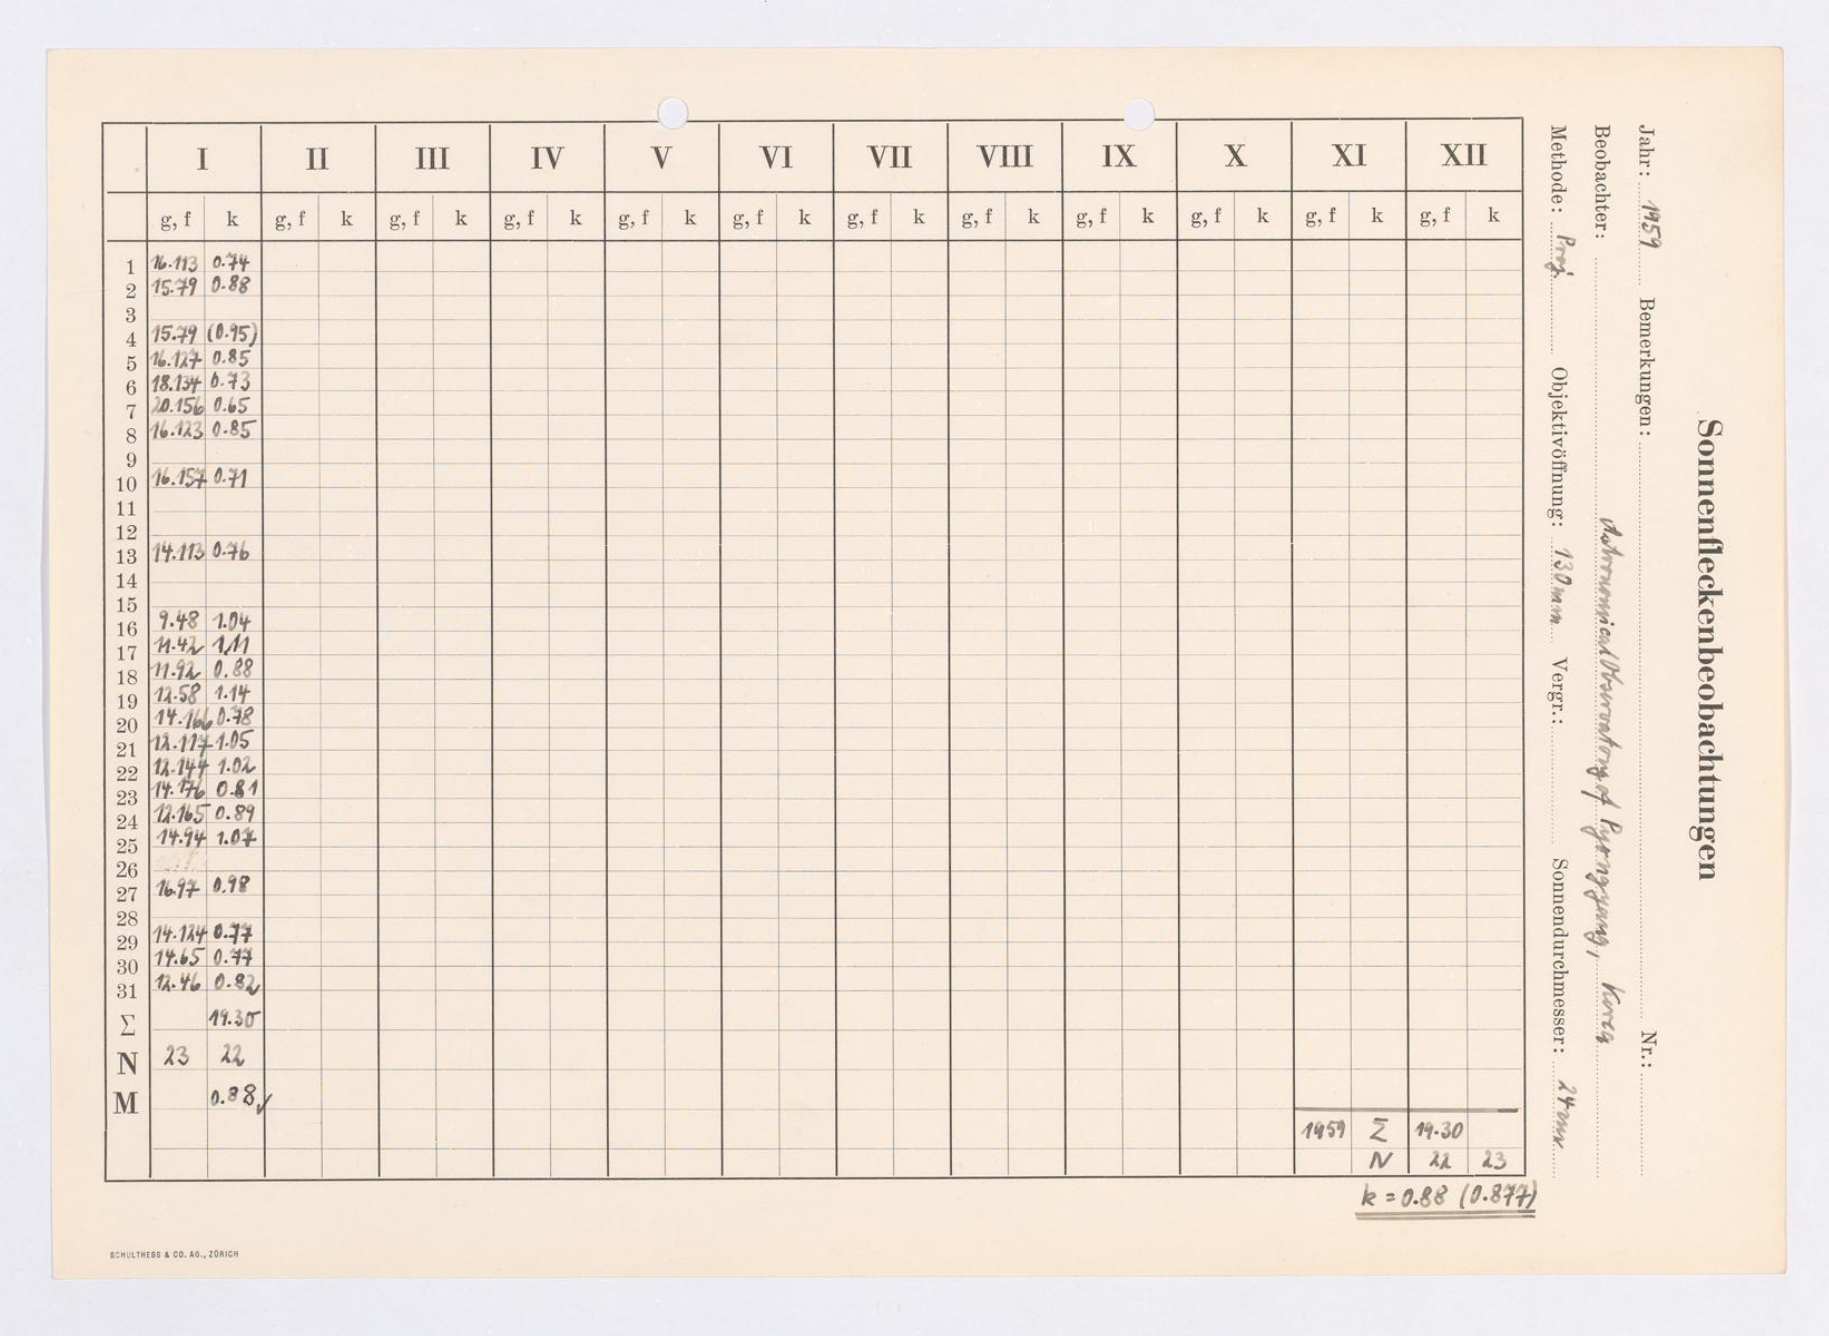 Sonnenfleckenbeobachtungen
Jahr: 1959 Bemerkungen: Nr.:
Beobachter: Astronomical Observatory of Pyongyang, Korea
Methode: Proj. Objektivöffnung: 130mm Vergr.: Sonnendurchmesser: 24cm
I II III IV V VI VII VIII IX X XI XII
g, f k g, f k g, f k g, f k g, f k g, f k g, f k g, f k g, f k g, f k g, f k g, f k
1 16.113 0.74
2 15.79 0.88
3
4 15.79 (0.95)
5 16.127 0.85
6 18.134 0.73
7 20.156 0.65
8 16.123 0.85
9
10 16.157 0.71
11
12
13 14.113 0.76
14
15
16 9.48 1.04
17 11.42 1.11
18 11.92 0.88
19 12.58 1.14
20 14.166 0.78
21 12.117 1.05
22 12.144 1.02
23 14.176 0.81
24 12.165 0.89
25 14.94 1.07
26
27 16.97 0.98
28
29 14.124 0.77
30 14.65 0.77
31 12.46 0.82
Σ 19.30
N 23 22
M 0.88 ✓
1959 Σ 19.30
N 22 23
k = 0.88 (0.877)
SCHULTHESS & CO. AG., ZÜRICH